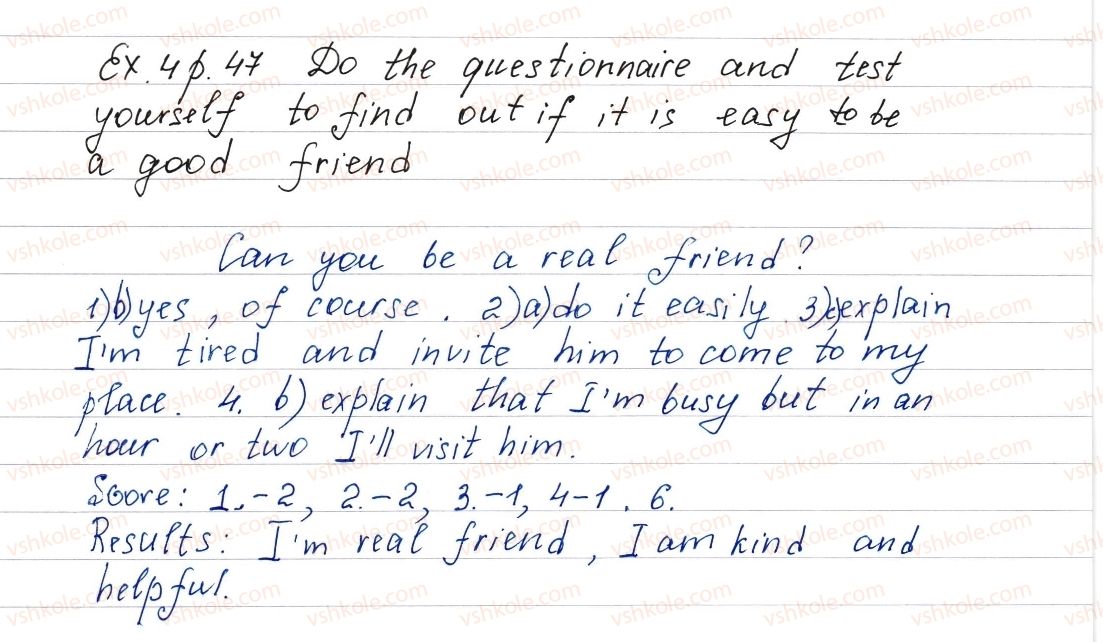 Ex. 4 p. 47 Do the questionnaire and test
yourself to find out if it is easy to be
a good friend
Can you be a real friend?
1) b) yes, of course. 2) a) do it easily. 3) c) explain
I'm tired and invite him to come to my
place. 4. b) explain that I'm busy but in an
hour or two I'll visit him.
Score: 1.-2, 2.-2, 3.-1, 4-1. 6.
Results: I'm real friend, I am kind and
helpful.
vshkole.com